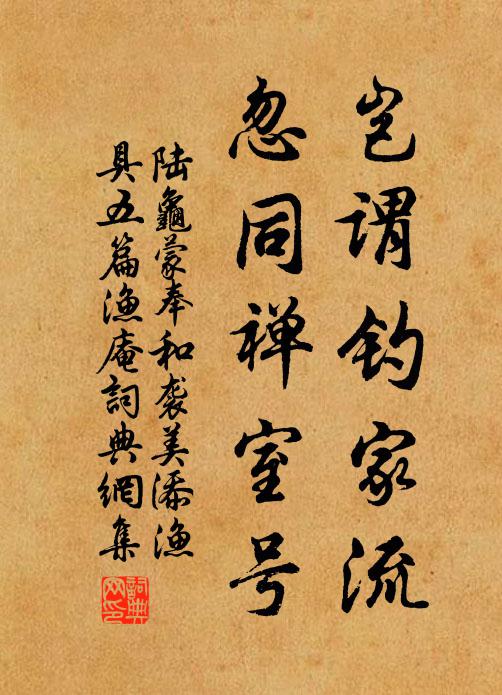 岂谓钓家流
忽同禅室号
陆龜蒙奉和袭美添渔
具五篇渔庵詞典網集
詞典
网印